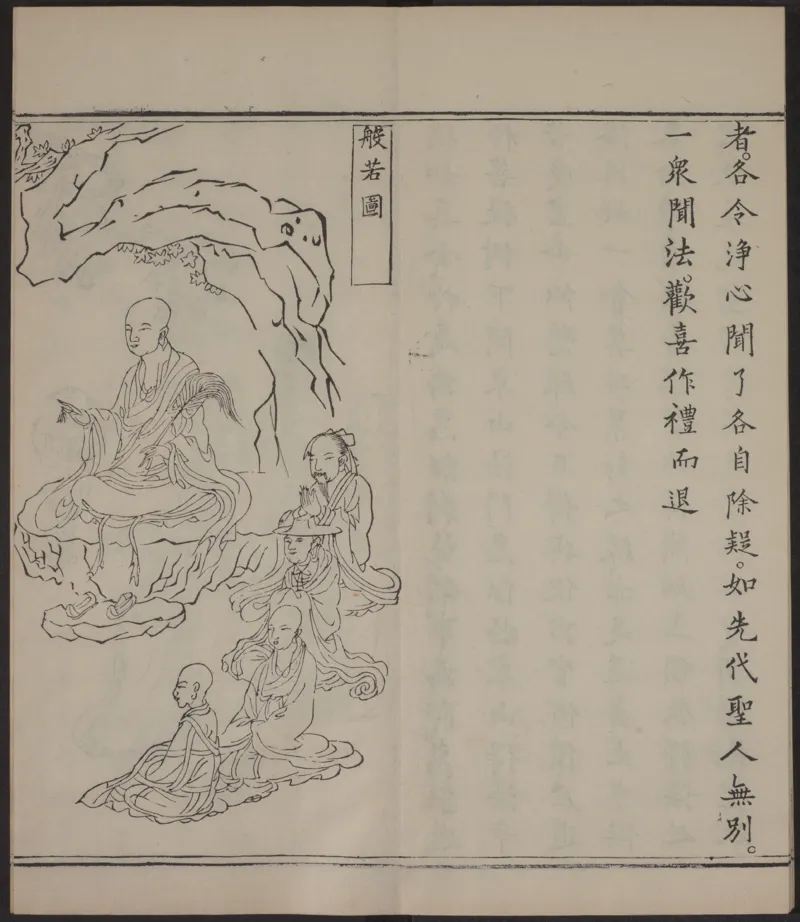 者。各令淨心聞了各自除疑。如先代聖人無別。
一衆聞法。歡喜作禮而退
般若圖